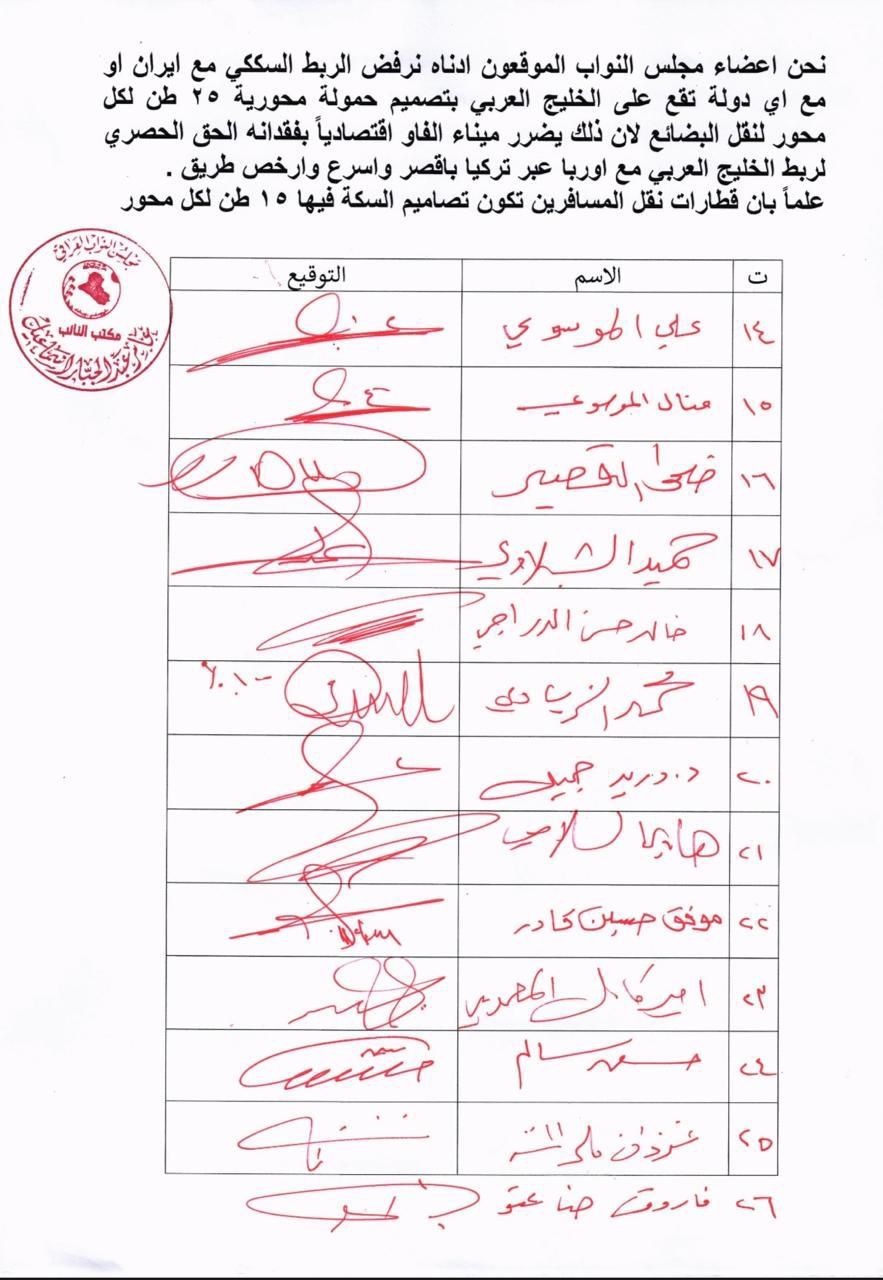 نحن اعضاء مجلس النواب الموقعون ادناه نرفض الربط السككي مع ايران او
مع اي دولة تقع على الخليج العربي بتصميم حمولة محورية ٢٥ طن لكل
محور لنقل البضائع لان ذلك يضرر ميناء الفاو اقتصادياً بفقدانه الحق الحصري
لربط الخليج العربي مع اوربا عبر تركيا باقصر واسرع وارخص طريق .
علماً بان قطارات نقل المسافرين تكون تصاميم السكة فيها ١٥ طن لكل محور
مجلس النواب العراقي
مكتب النائب
عبد الجبار
ت الاسم التوقيع
١٤ علي الموسوي
١٥ منال الموسوي
١٦ ضحى القصير
١٧ حميد الشبلاوي
١٨ خالد حسن الدراجي
١٩ محمد الزيادي
٢٠ د. دريد جميل
٢١ السلامي
٢٢ موفق حسين
٢٣ امير كامل المعموري
٢٤ سالم
٢٥
٢٦ فاروق حنا عتو